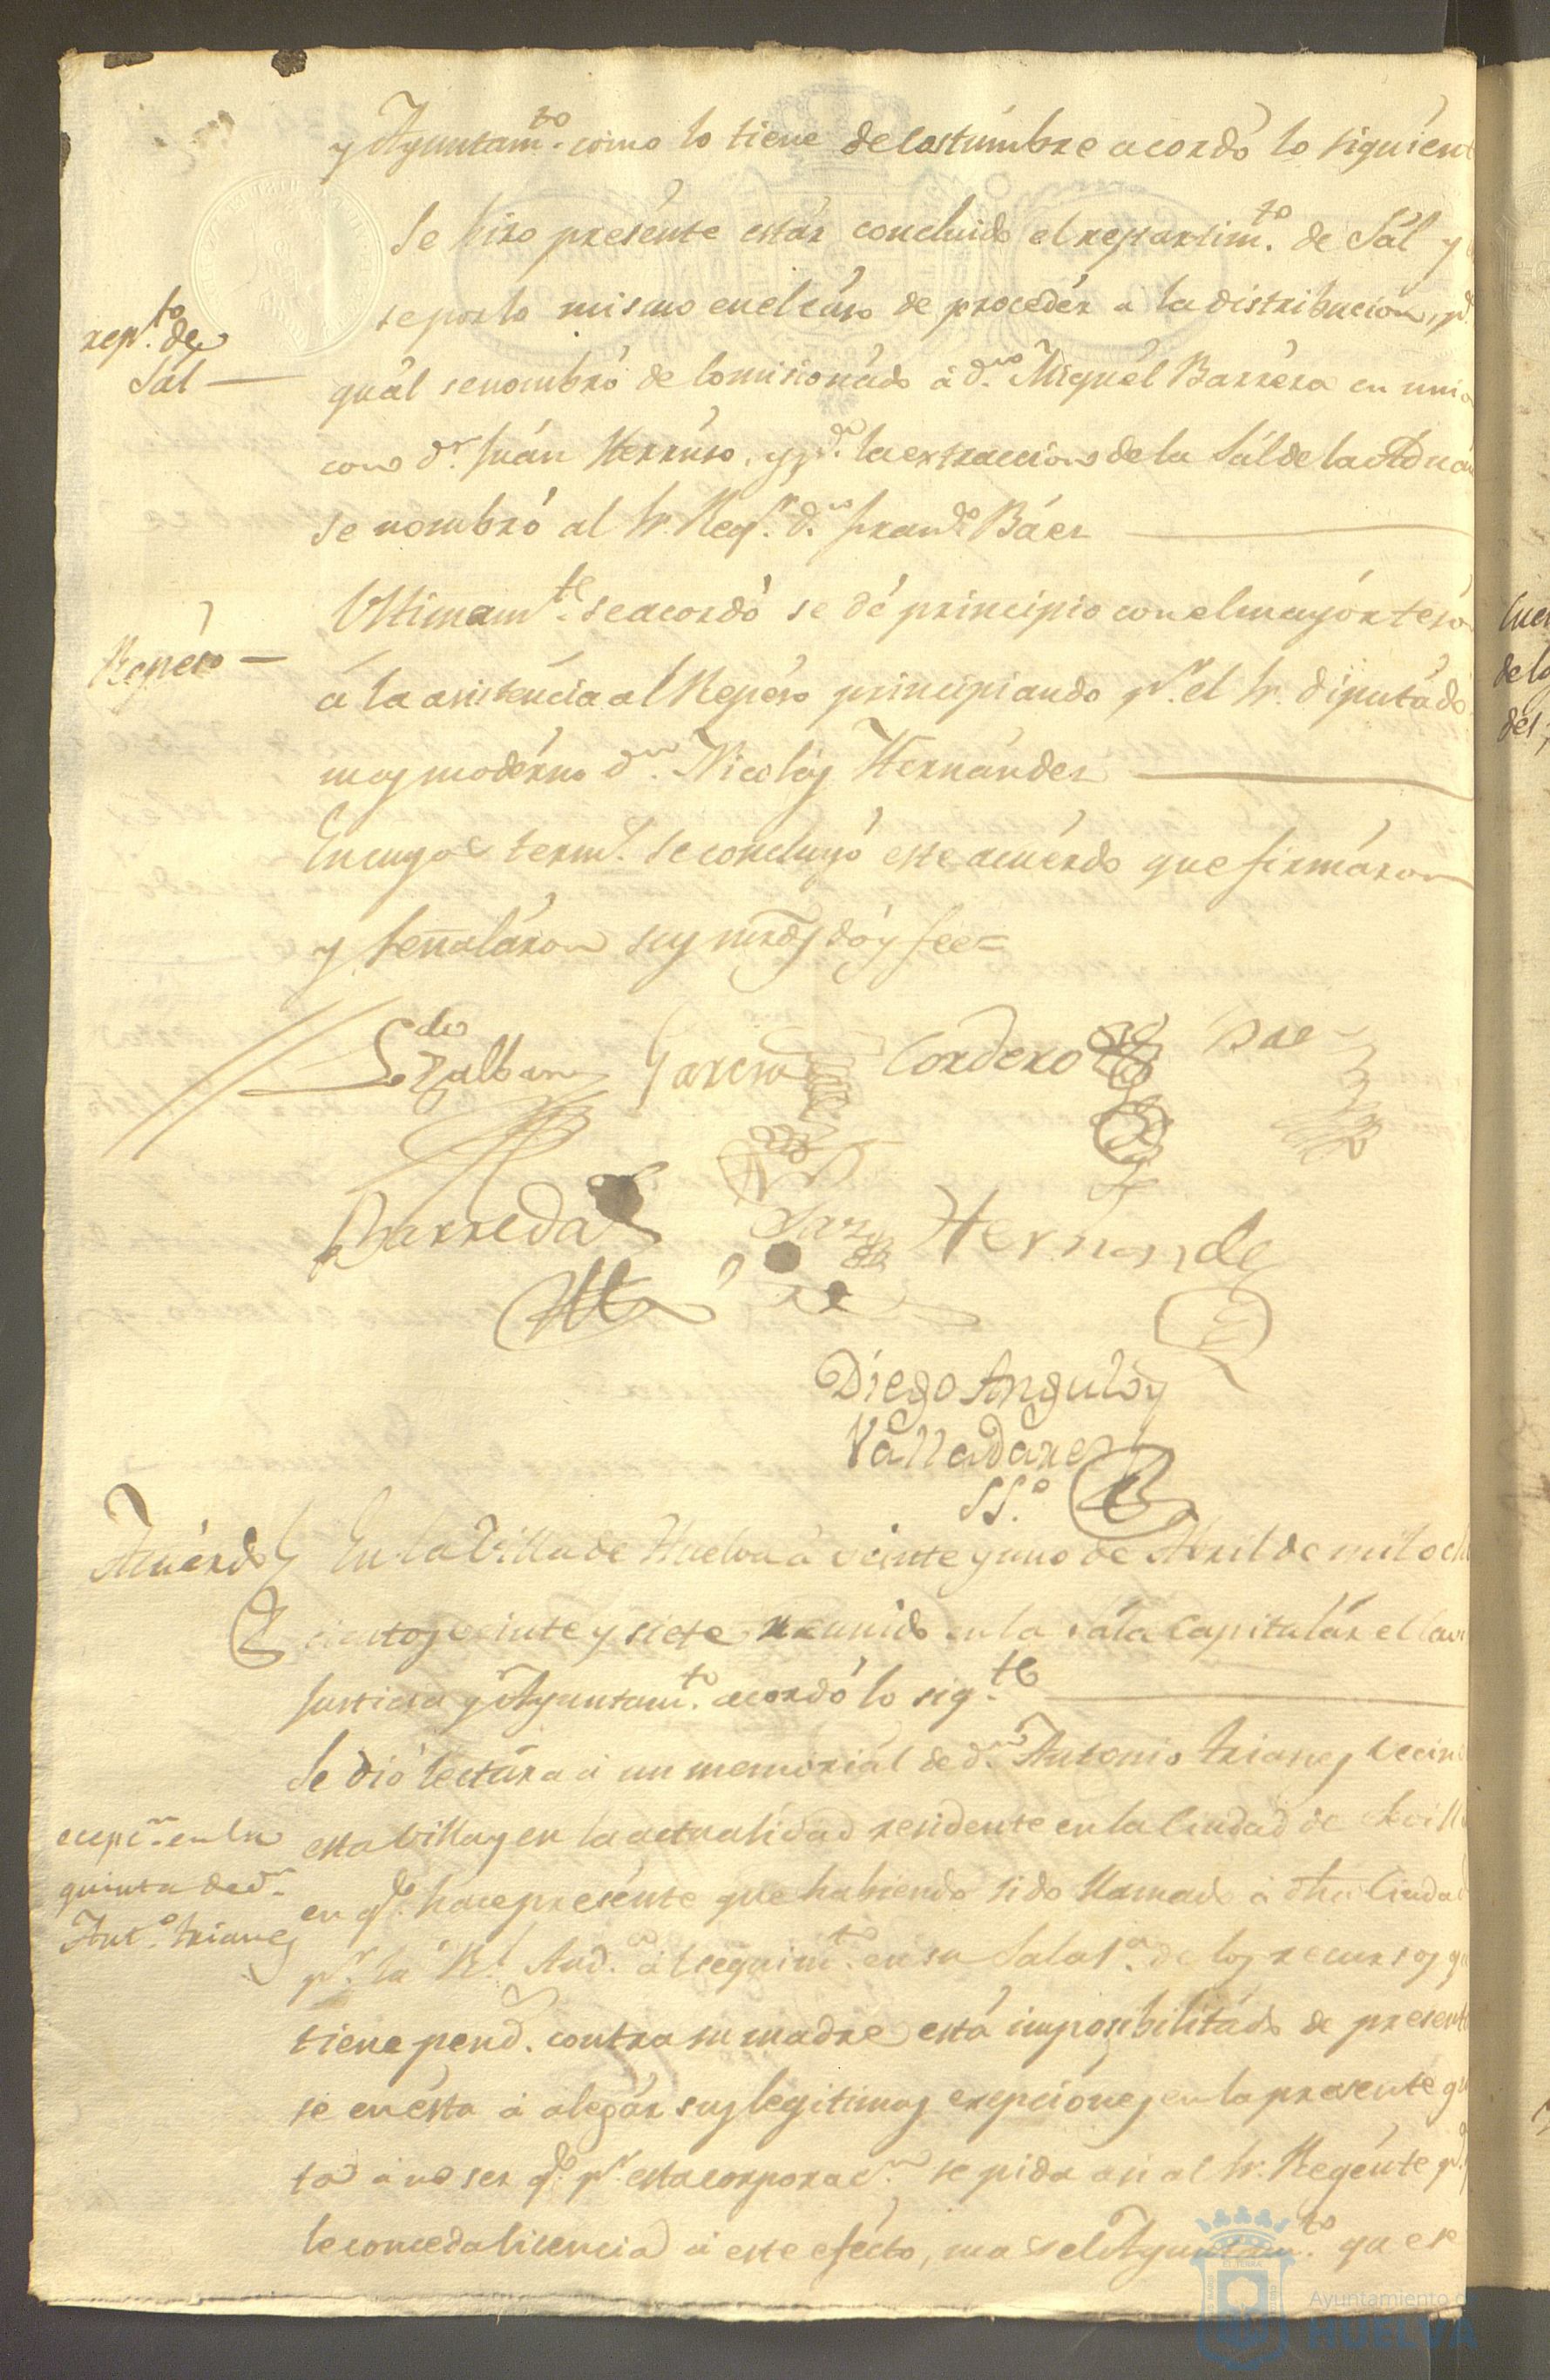 y Ayuntam.to como lo tiene de Costúmbre acordó lo siguient
Se hizo presénte estár concluido el repartim.to de Sál y
rep.to de
Sál —
se por lo mismo en el cáso de procedér a la distribucion, p.a
quál se nombró de Comisionádo á d.n Miguél Barréra en unio
con d.n Juán Herrúzo, y p.a la extraccion de la Sál de la Aduan
se nombró al Sr. Reg.r d.n Fran.co Báez
Ultimam.te se acordó se dé principio con el mayór tesón
Repéso —
á la asisténcia al Repéso principiando p.r el Sr. diputádo
mas modérno d.n Nicolás Hernández
En cuyos term.s se concluyó este acuérdo que firmáron
y señaláron sus mrds dóy fee =
L.do Zalbany García Cordero Bae
Barreda Hernandez
Diego Angulo y
Valladares
SS.o
Acuérdo En la Villa de Huelva á veinte y uno de Abril de mil och
cientos veinte y siete reunido en la sála Capitulár el
Justicia y Ayuntam.to acordó lo sig.te
Se dió lectúra á un memoriál de d.n Antonio Trianes vecin
esta Villa y en la actualidad residente en la Ciudad de Sevill
ecepc.n en la
quinta de d.n
Ant.o Trianes
en q.e hace presénte que habiendo sido llamado á dha Ciudad
p.r la R.l Aud.a al seguim.to en su Sala 1.a de los recursos q
tiene pend. contra su madre está imposibilitádo de present
se en ésta á alegár sus legitimas exepciónes en la presente qu
ta á no ser q.e p.r esta corporac.n se pida asi al Sr. Regénte p.a
le conceda licencia á este efécto, mas el Ayuntam.to que
Ayuntamiento de
HUELVA